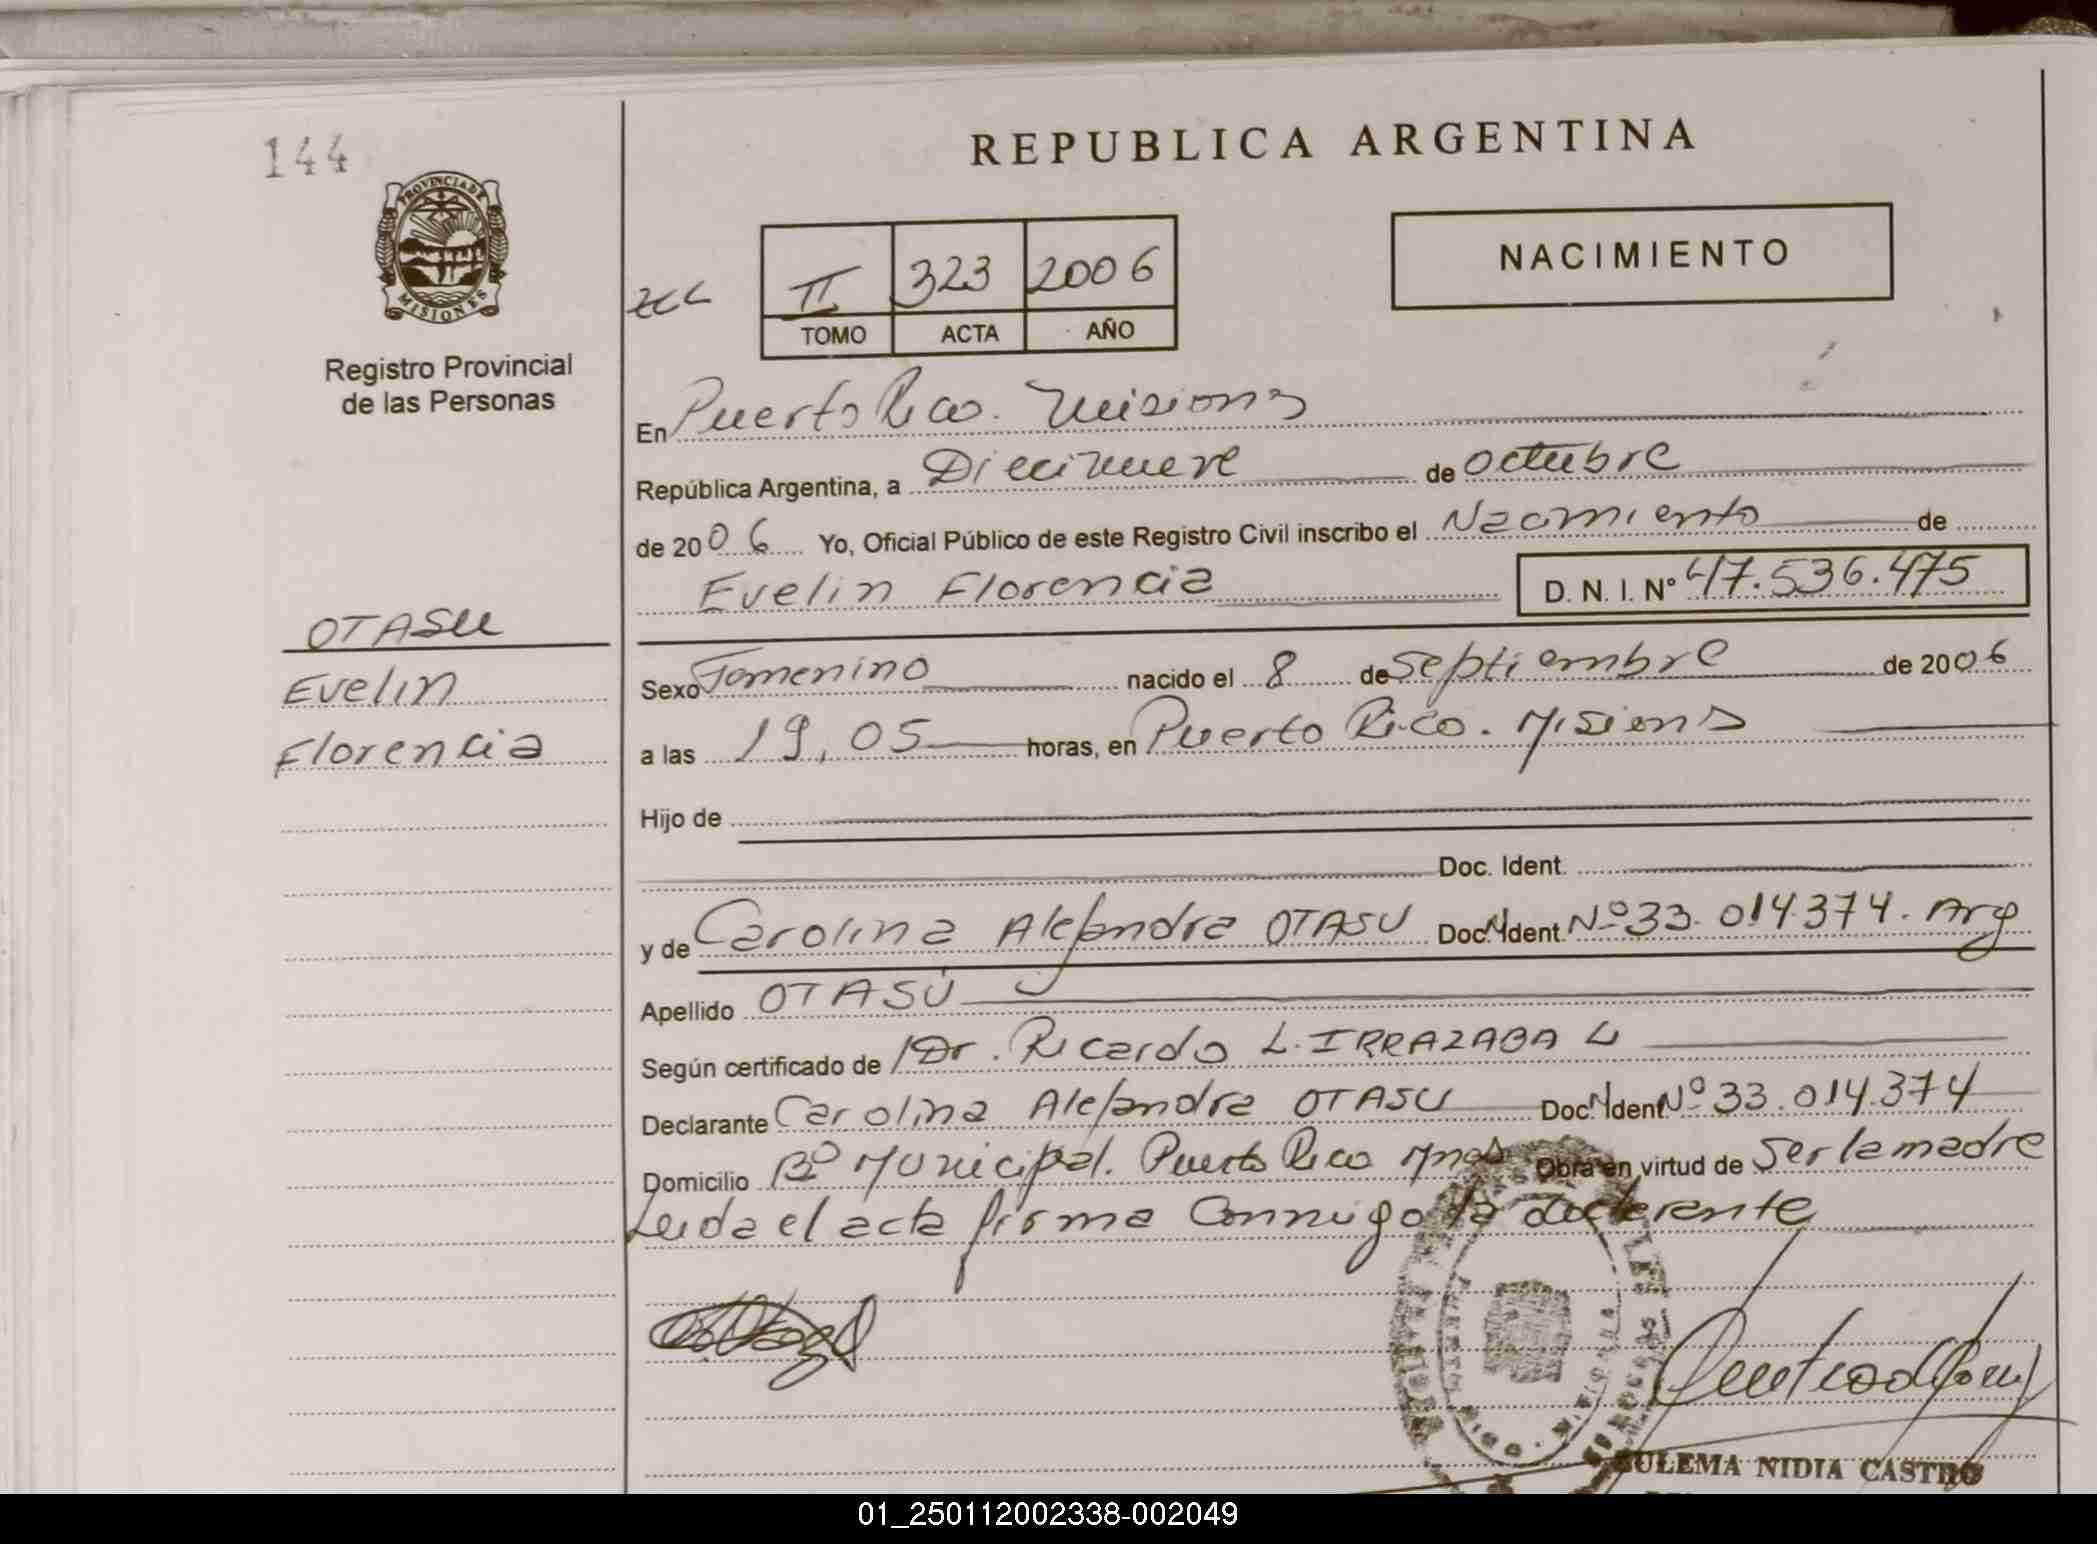 144
PROVINCIA DE
MISIONES
Registro Provincial
de las Personas
OTASU
Evelin
Florencia
REPUBLICA ARGENTINA
II 323 2006
TOMO ACTA AÑO
NACIMIENTO
En Puerto Rico. Misiones
República Argentina, a Diecinueve de octubre
de 2006 Yo, Oficial Público de este Registro Civil inscribo el Nacimiento de
Evelin Florencia D. N. I. Nº 47.536.475
Sexo Femenino nacido el 8 de Septiembre de 2006
a las 19,05 horas, en Puerto Rico. Misiones
Hijo de
Doc. Ident.
y de Carolina Alejandra OTASU Doc. Ident. Nº 33.014.374. Arg
Apellido OTASÚ
Según certificado de Dr. Ricardo L. IRRAZABAL
Declarante Carolina Alejandra OTASU Doc. Ident Nº 33.014.374
Domicilio Bº Municipal. Puerto Rico Mnes Obra en virtud de Ser la madre
Leida el acta firma Conmigo la declarante
PUERTO RICO - MISIONES
ZULEMA NIDIA CASTRO
01_250112002338-002049